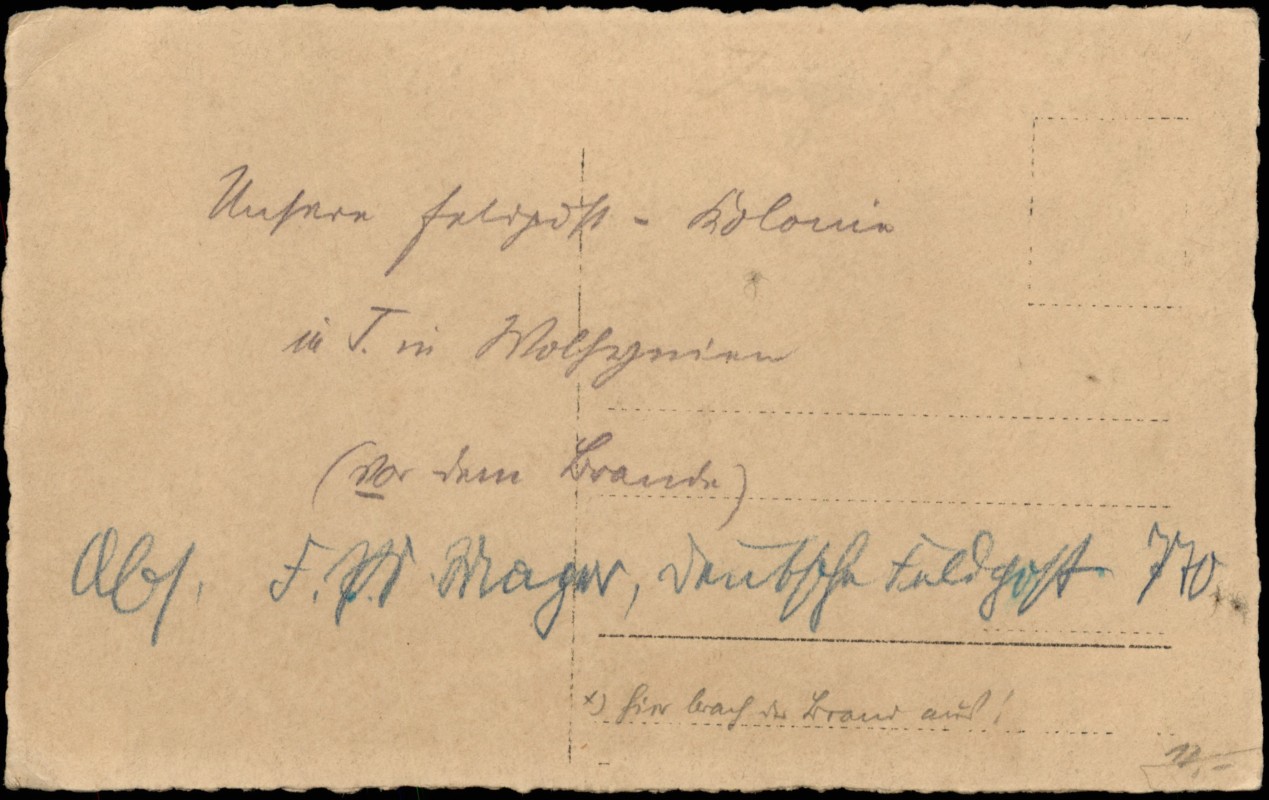 Unsere Feldpost-Kolonie
in T. in Wolhynien
(vor dem Brande)
Abs. F. Mayer, Deutsche Feldpost 770.
x) hier brach der Brand aus!
12,-